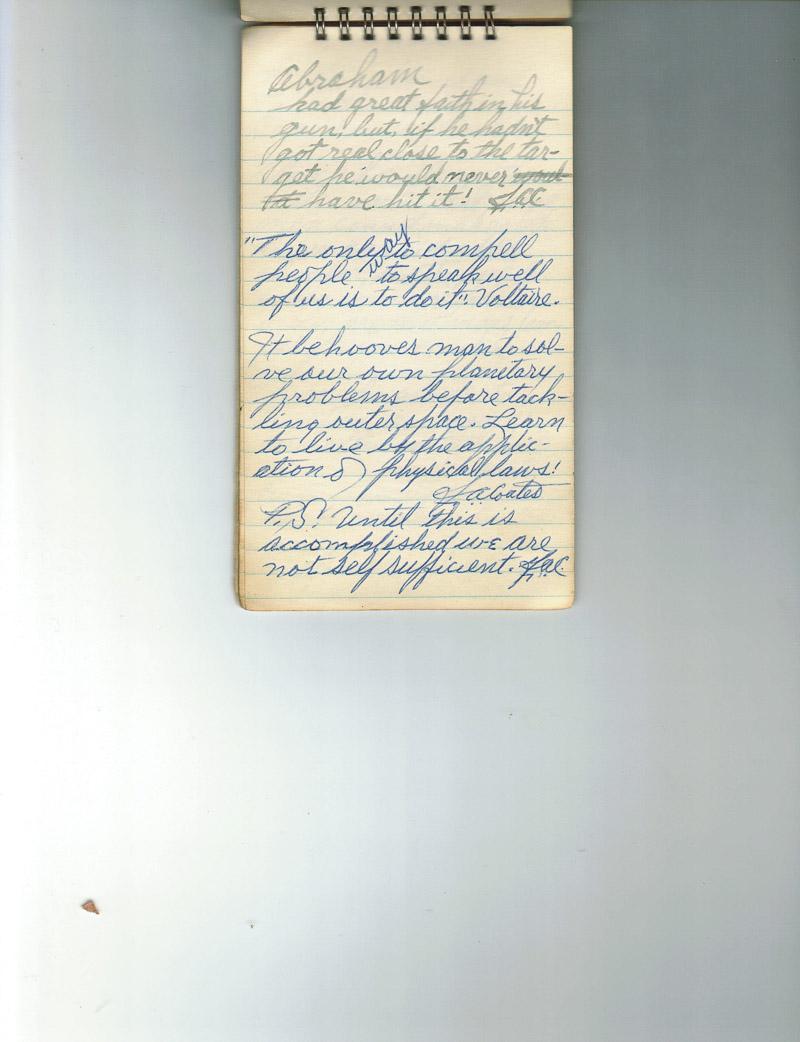 Abraham
had great faith in his
gun; but, if he hadn't
got real close to the tar-
get he would never
have hit it!
"The only way to compell
people to speak well
of us is to do it". Voltaire.
It behooves man to sol-
ve our own planetary
problems before tack-
ling outer space. Learn
to live by the applic-
ation of physical laws!
P.S. Until this is
accomplished we are
not self sufficient.